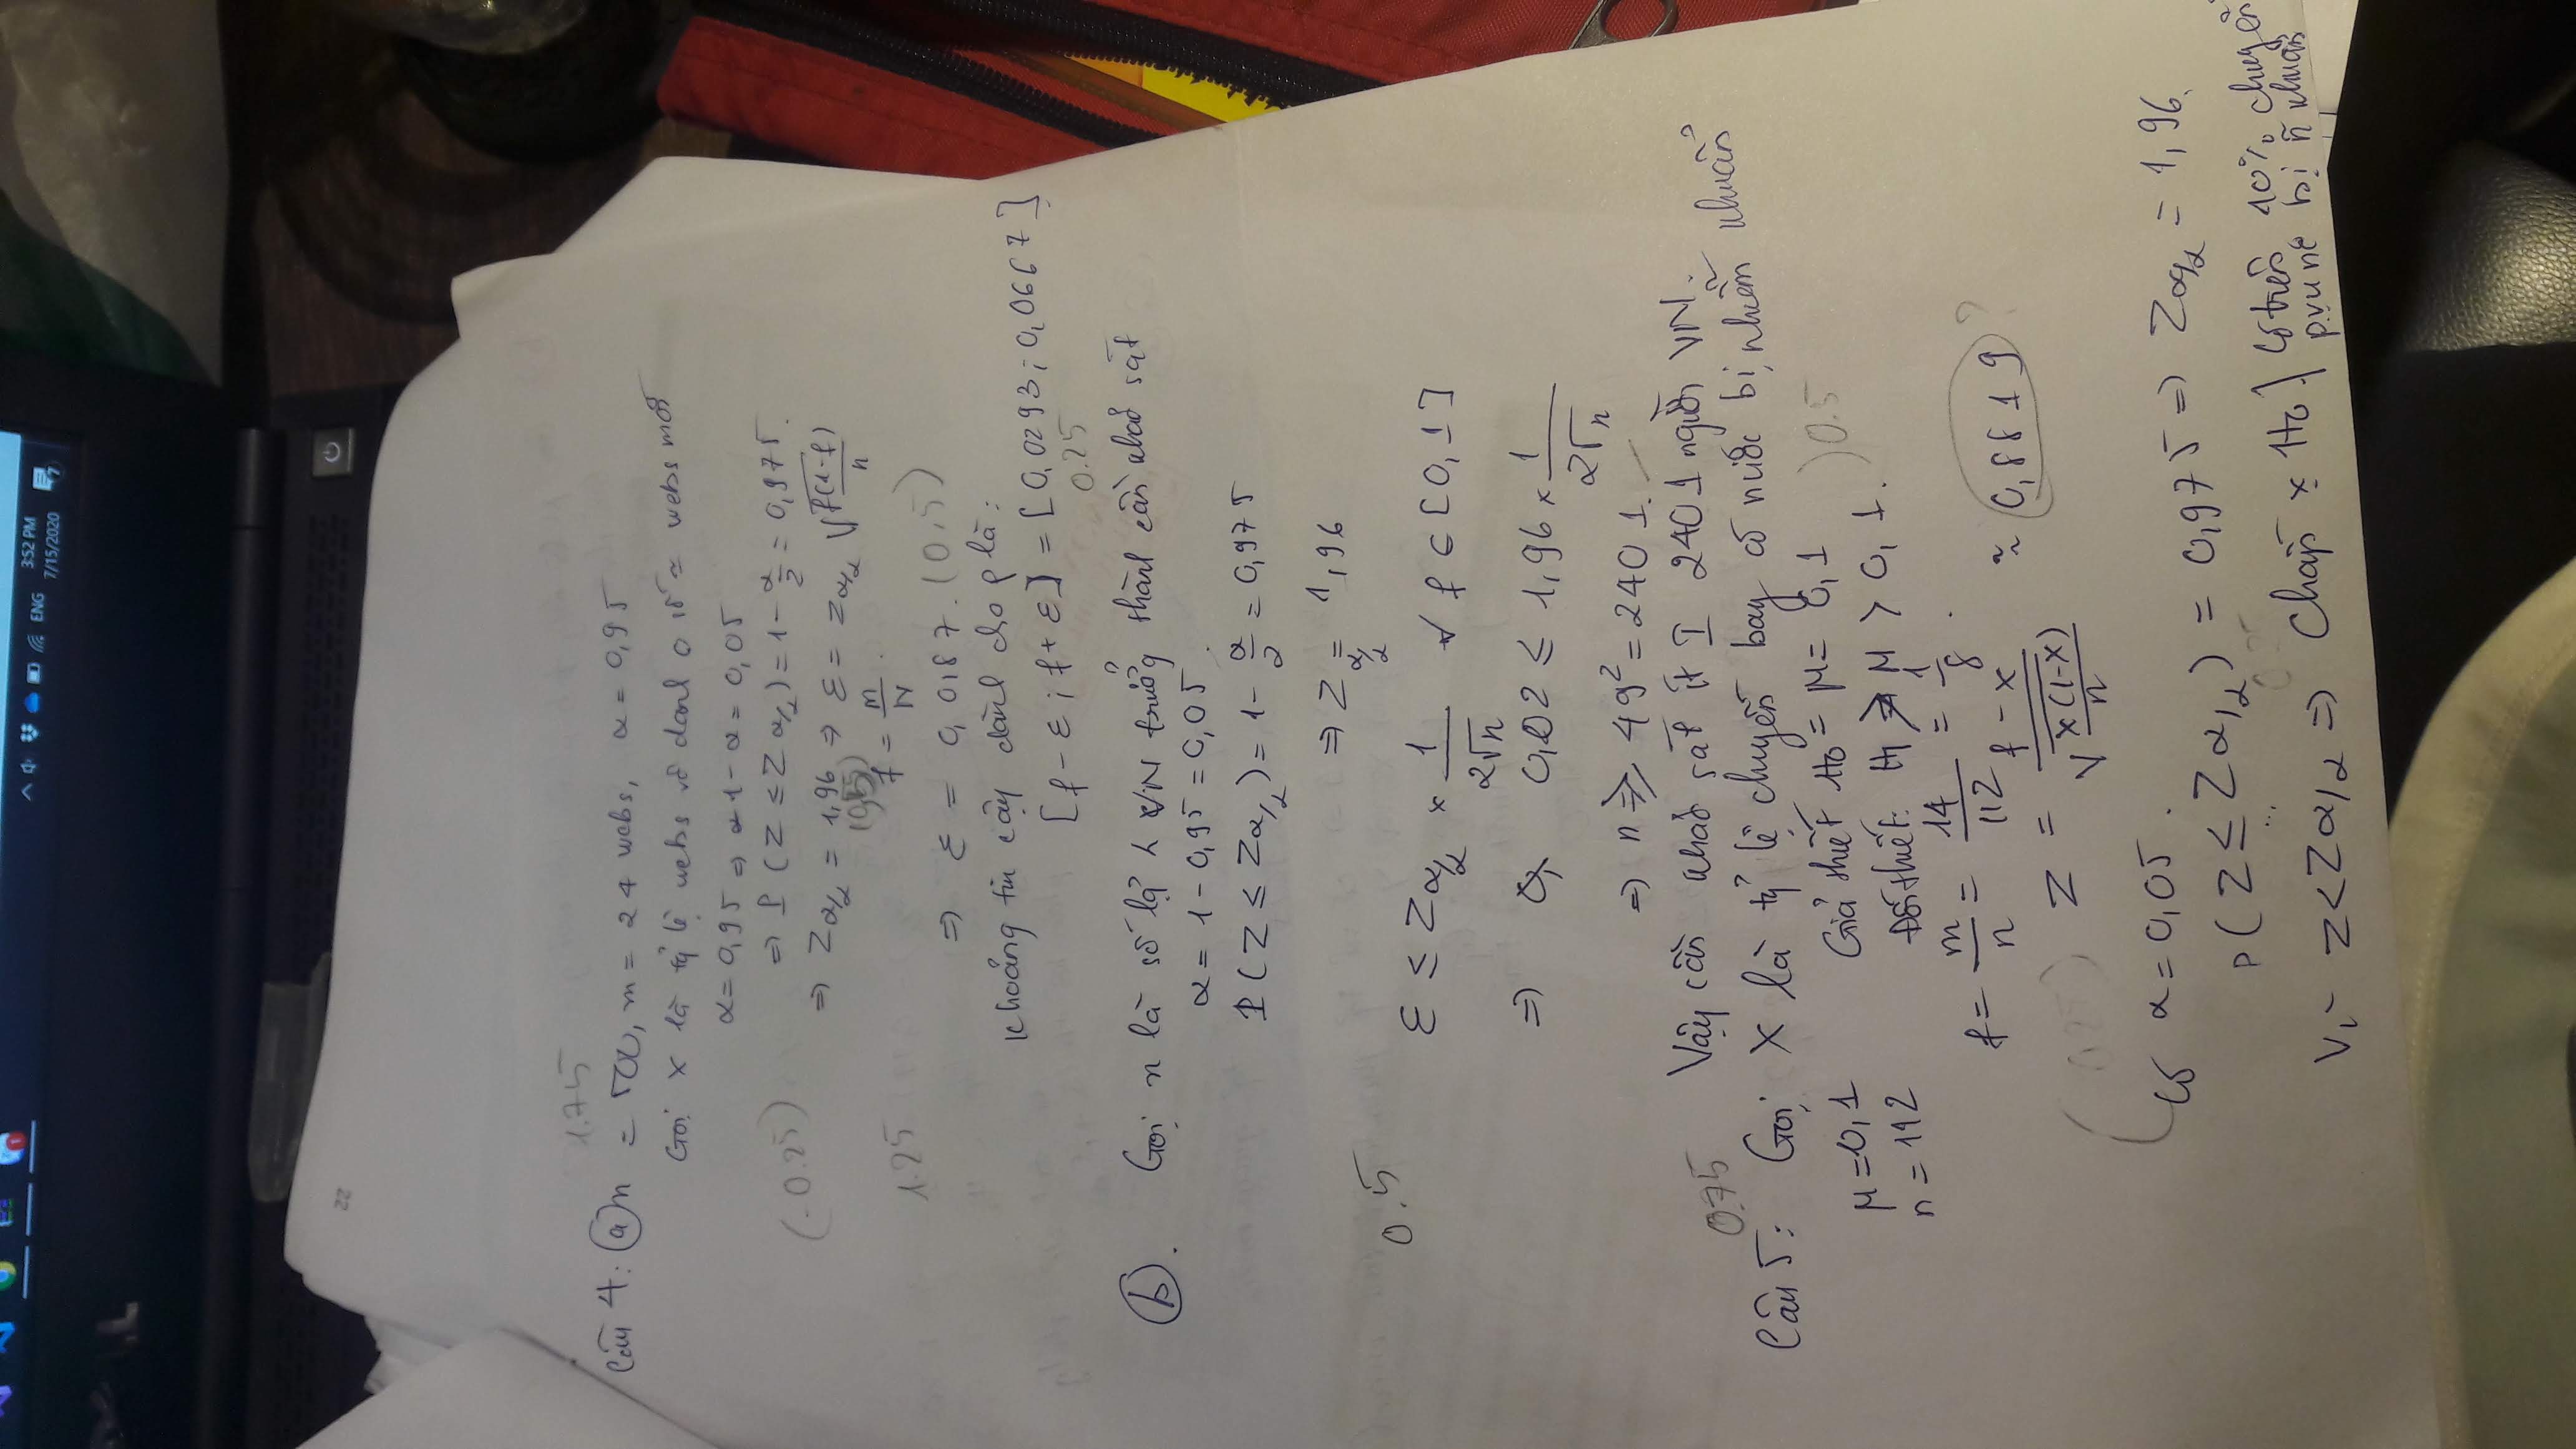 22
1.75
Câu 4: a) n = 500, m = 24 webs, α = 0,95
Gọi x là tỷ lệ webs về
α = 0,95 ⇒ α 1 - α = 0,05
⇒ P(Z ≤ Zα/2) = 1 - α/2 = 0,975.
(0.25)
⇒ Zα/2 = 1,96 ⇒ ε = Zα/2 √(f(1-f)/n)
f = m/N.
1.25
⇒ ε = 0,0187. (0,5)
Khoảng tin cậy dành cho p là:
[f - ε; f + ε] = [0,0293; 0,0667]
0.25
b). Gọi n là số lg 1 VN trưởng thành cần khảo sát
α = 1 - 0,95 = 0,05.
P(Z ≤ Zα/2) = 1 - α/2 = 0,975
⇒ Zα/2 = 1,96
0.5
ε ≤ Zα/2 × 1/2√n ∀ f ∈ [0,1]
⇒ 0,02 ≤ 1,96 × 1/2√n
⇒ n ≥ 49² = 2401.
Vậy cần khảo sát ít I 2401 người VN.
0.75
Câu 5: Gọi X là tỷ lệ chuyến bay có nước bị nhiễm khuẩn
μ = 0,1
n = 112
Giả thiết H₀ = μ = 0,1
Đối thiết: H₁ μ > 0,1.
) 0.5
f = m/n = 14/112 = 1/8.
Z = (f - x)/√(x(1-x)/n) ≈ 0,8819 ?
(0,25)
Có α = 0,05.
P(Z ≤ Zα/2) = 0,975 ⇒ Zα/2 = 1,96.
Vì Z < Zα/2 ⇒ Chấp x H₀
trên 10% chuyến
bị ñ khuẩn